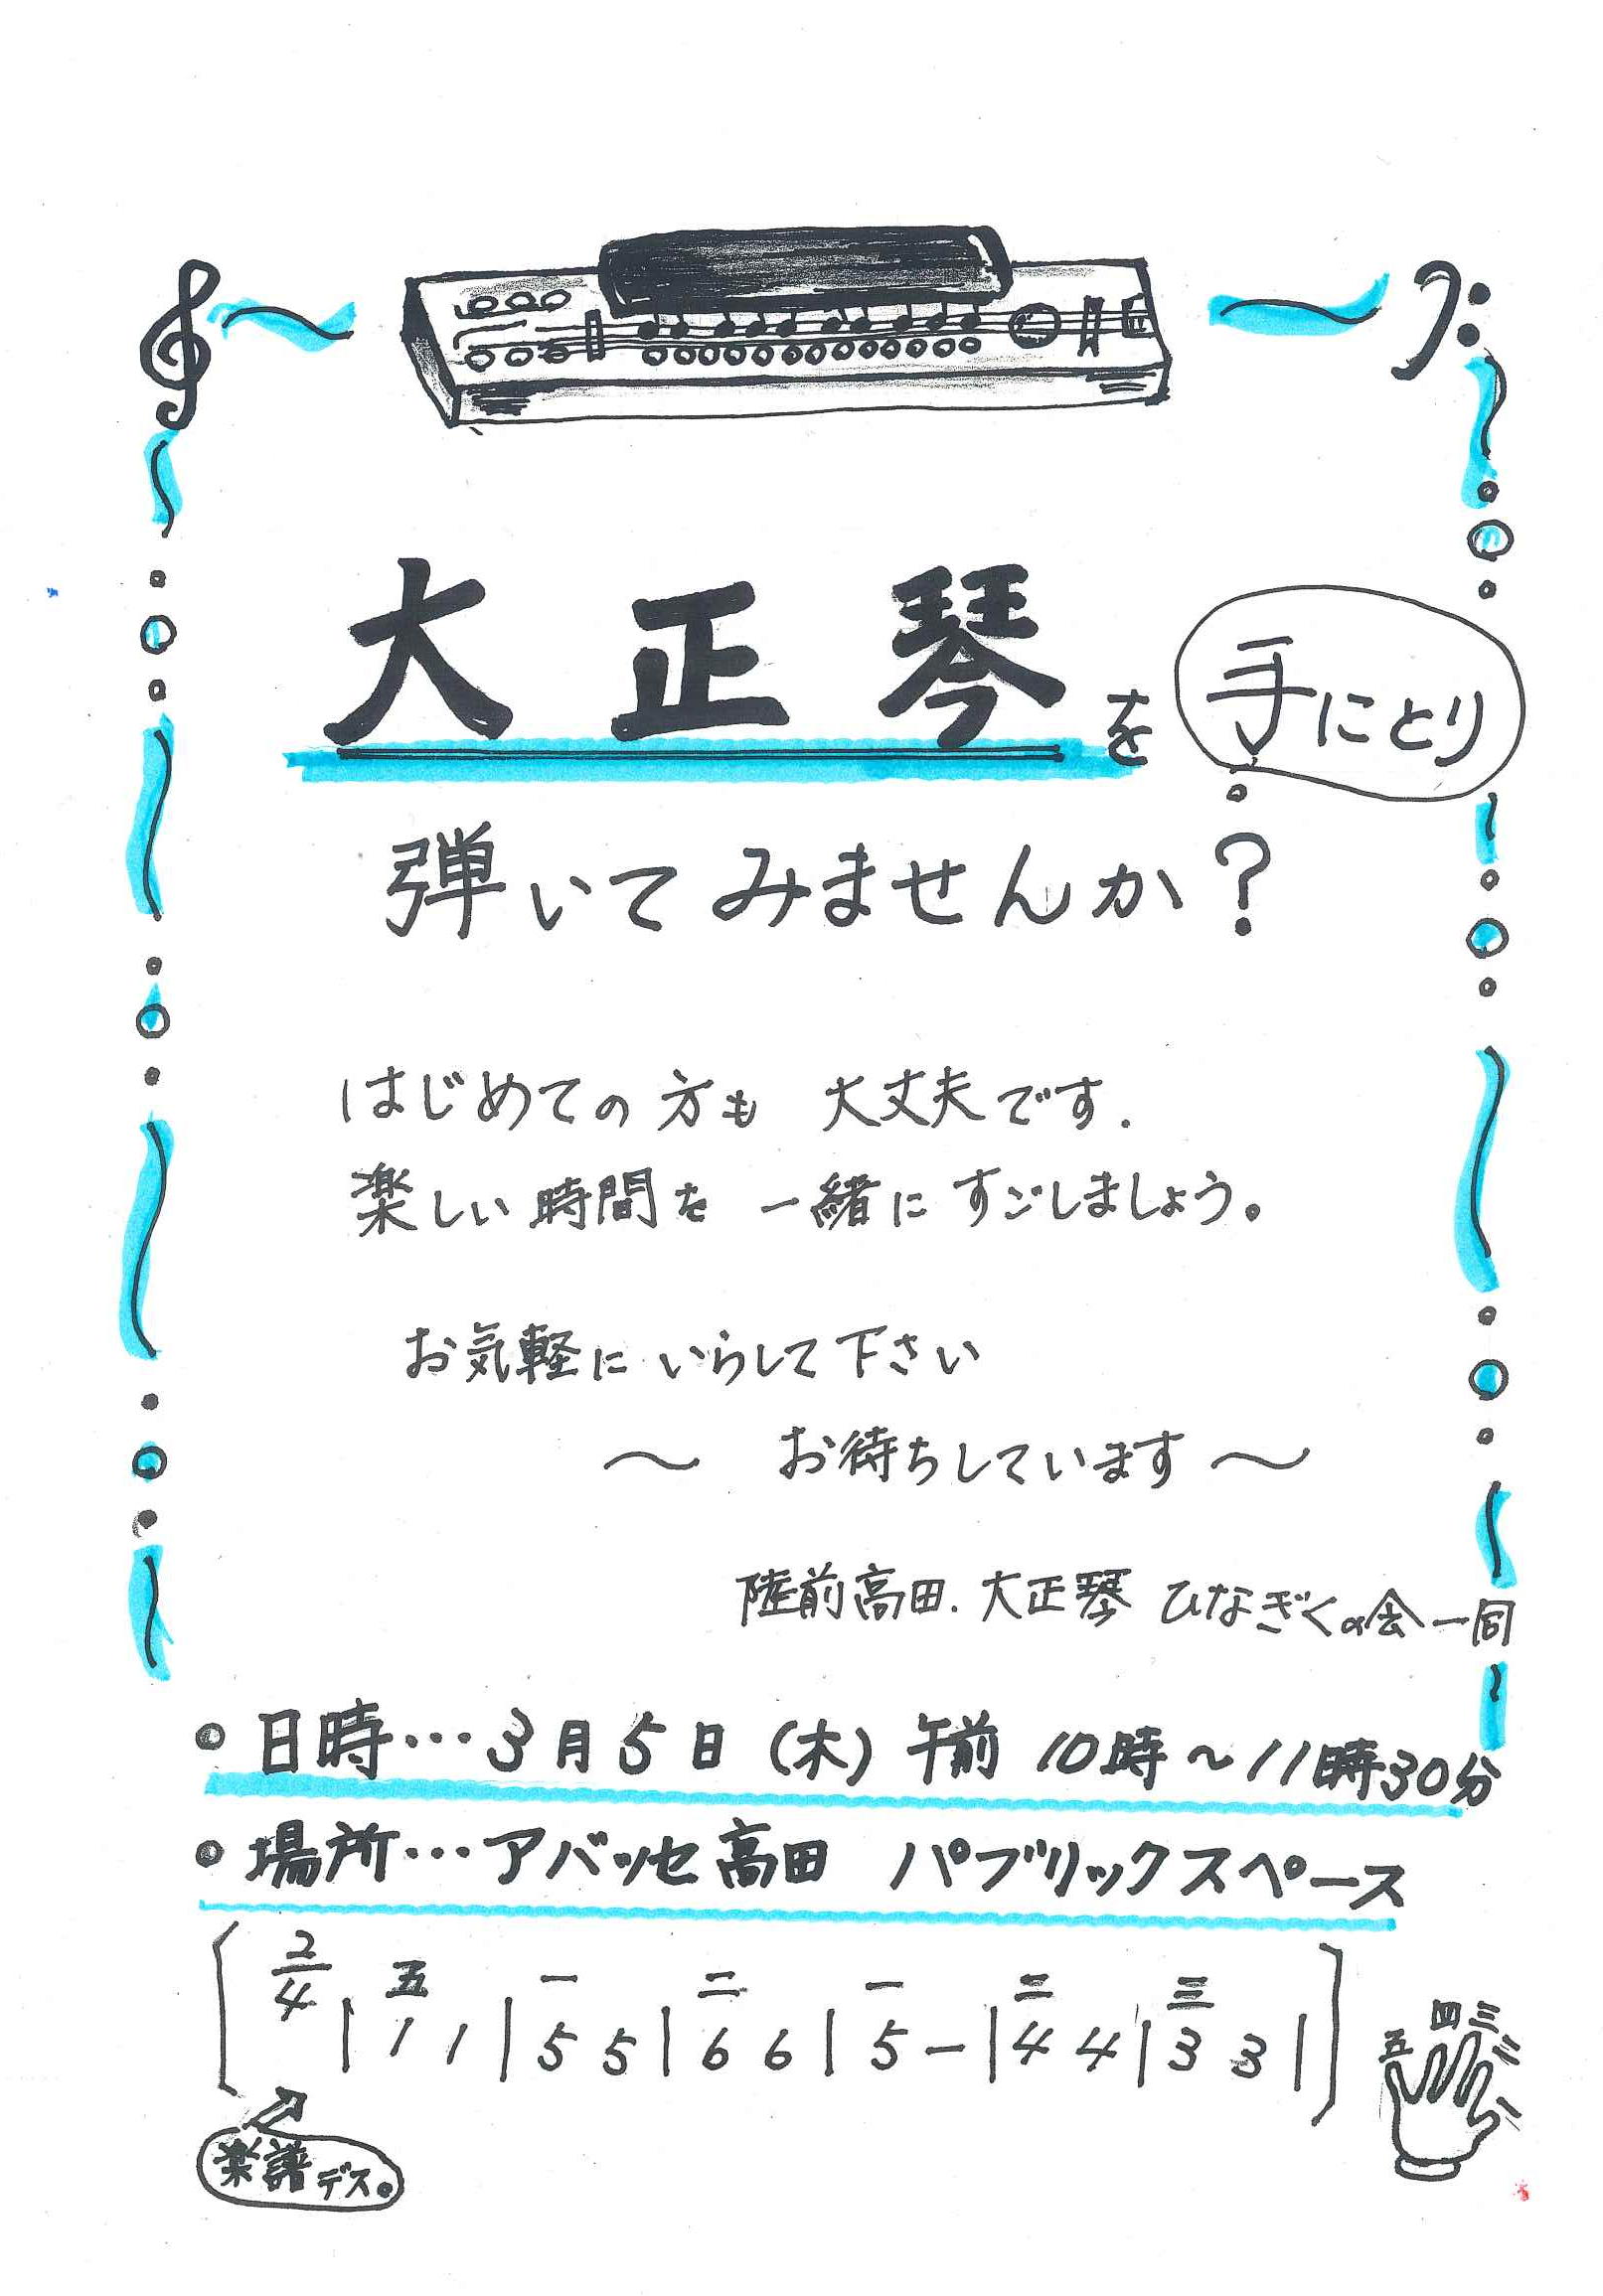 大正琴を手にとり
弾いてみませんか?
はじめての方も 大丈夫です.
楽しい時間を 一緒に すごしましょう。
お気軽に いらして下さい
〜 お待ちしています〜
陸前高田.大正琴 ひなぎくの会一同
• 日時…3月5日(木)午前 10時~11時30分
• 場所…アバッセ高田 パブリックスペース
2/4 五 一 二 一 二 三
| 1 1 | 5 5 | 6 6 | 5 ー | 4 4 | 3 3 |
五 四 三 二 一
楽譜デス。